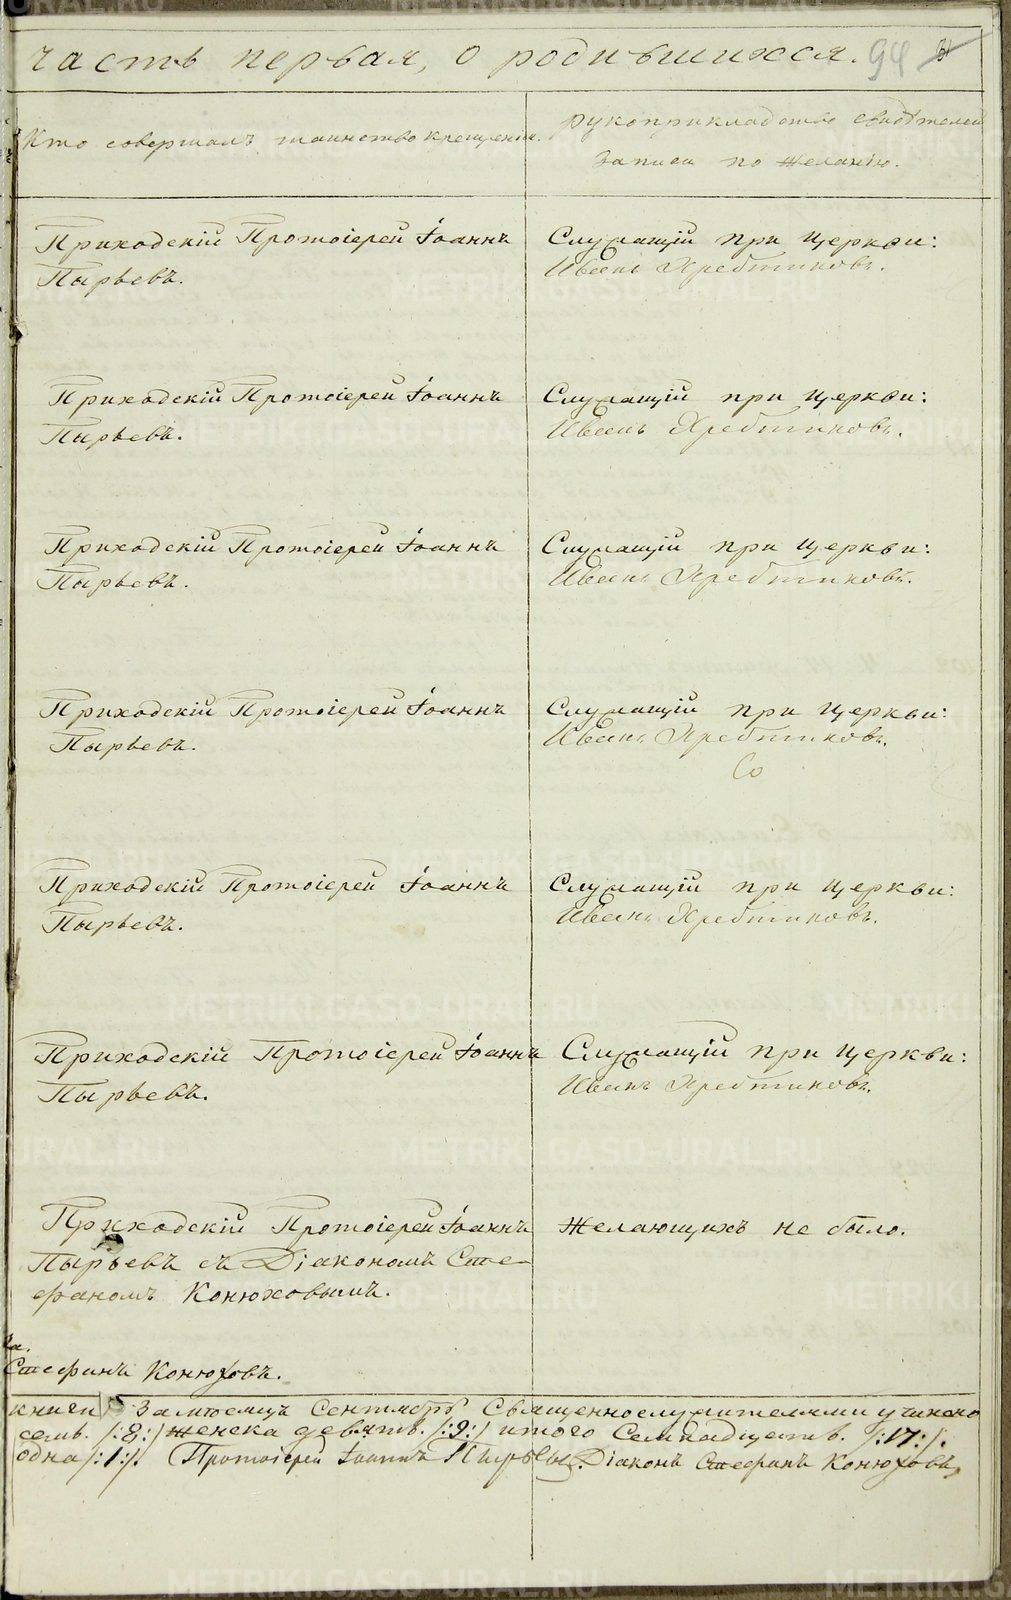 часть первая, о родившихся. 94
Кто совершалъ таинство крещенія.
рукоприкладство свидѣтелей
записи по желанію.
Приходскій Протоіерей Іоаннъ
Пырьевъ.
Служащій при церкви:
Иванъ Хребтиковъ.
Приходскій Протоіерей Іоаннъ
Пырьевъ.
Служащій при церкви:
Иванъ Хребтиковъ.
Приходскій Протоіерей Іоаннъ
Пырьевъ.
Служащій при церкви:
Иванъ Хребтиковъ.
Приходскій Протоіерей Іоаннъ
Пырьевъ.
Служащій при церкви:
Иванъ Хребтиковъ.
Со
Приходскій Протоіерей Іоаннъ
Пырьевъ.
Служащій при церкви:
Иванъ Хребтиковъ.
Приходскій Протоіерей Іоаннъ
Пырьевъ.
Служащій при церкви:
Иванъ Хребтиковъ.
Приходскій Протоіерей Іоаннъ
Пырьевъ съ Діакономъ Сте-
фаномъ Конюховымъ.
Желающихъ не было.
Стефанъ Конюховъ.
книги За мѣсяцъ Сентябрь Священнослужителями учинено
семь. /:8:/ женска девять. /:9:/ итого Семнадцать. /:17:/.
одна /:1:/. Протоіерей Іоаннъ Пырьевъ. Діаконъ Стефанъ Конюховъ,
METRIKI.GASO-URAL.RU